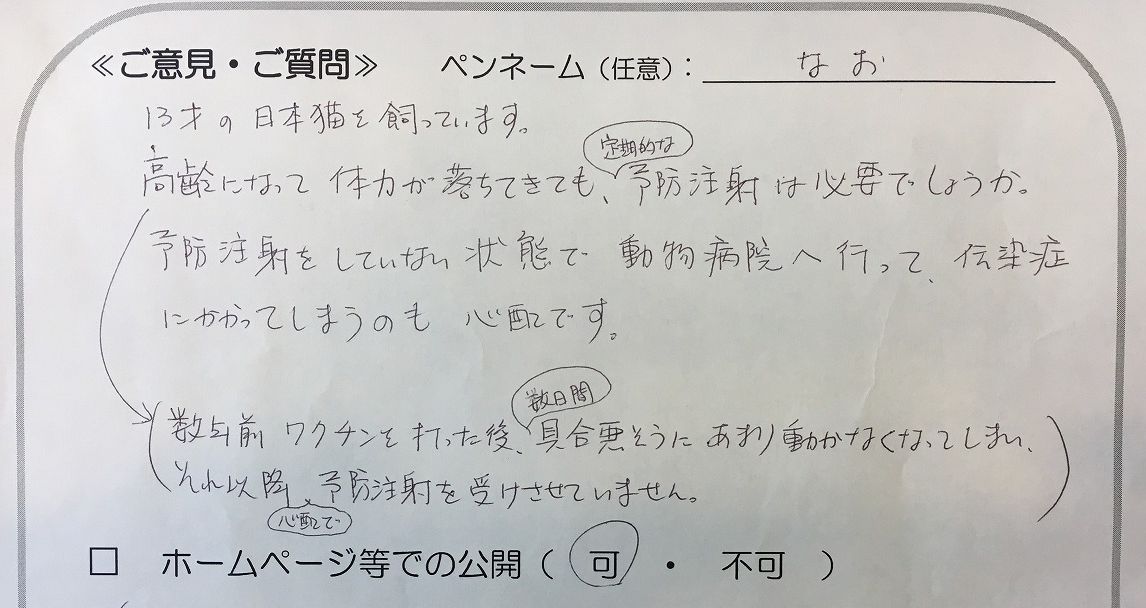 ≪ご意見・ご質問≫ ペンネーム（任意）：なお
13才の日本猫を飼っています。
定期的な
高齢になって体力が落ちてきても、予防注射は必要でしょうか。
予防注射をしていない状態で動物病院へ行って、伝染症
にかかってしまうのも心配です。
数日間
(数年前ワクチンを打った後、具合悪そうにあまり動かなくなってしまい、
それ以降、予防注射を受けさせていません。)
心配で
□ ホームページ等での公開（ 可 ・ 不可 ）